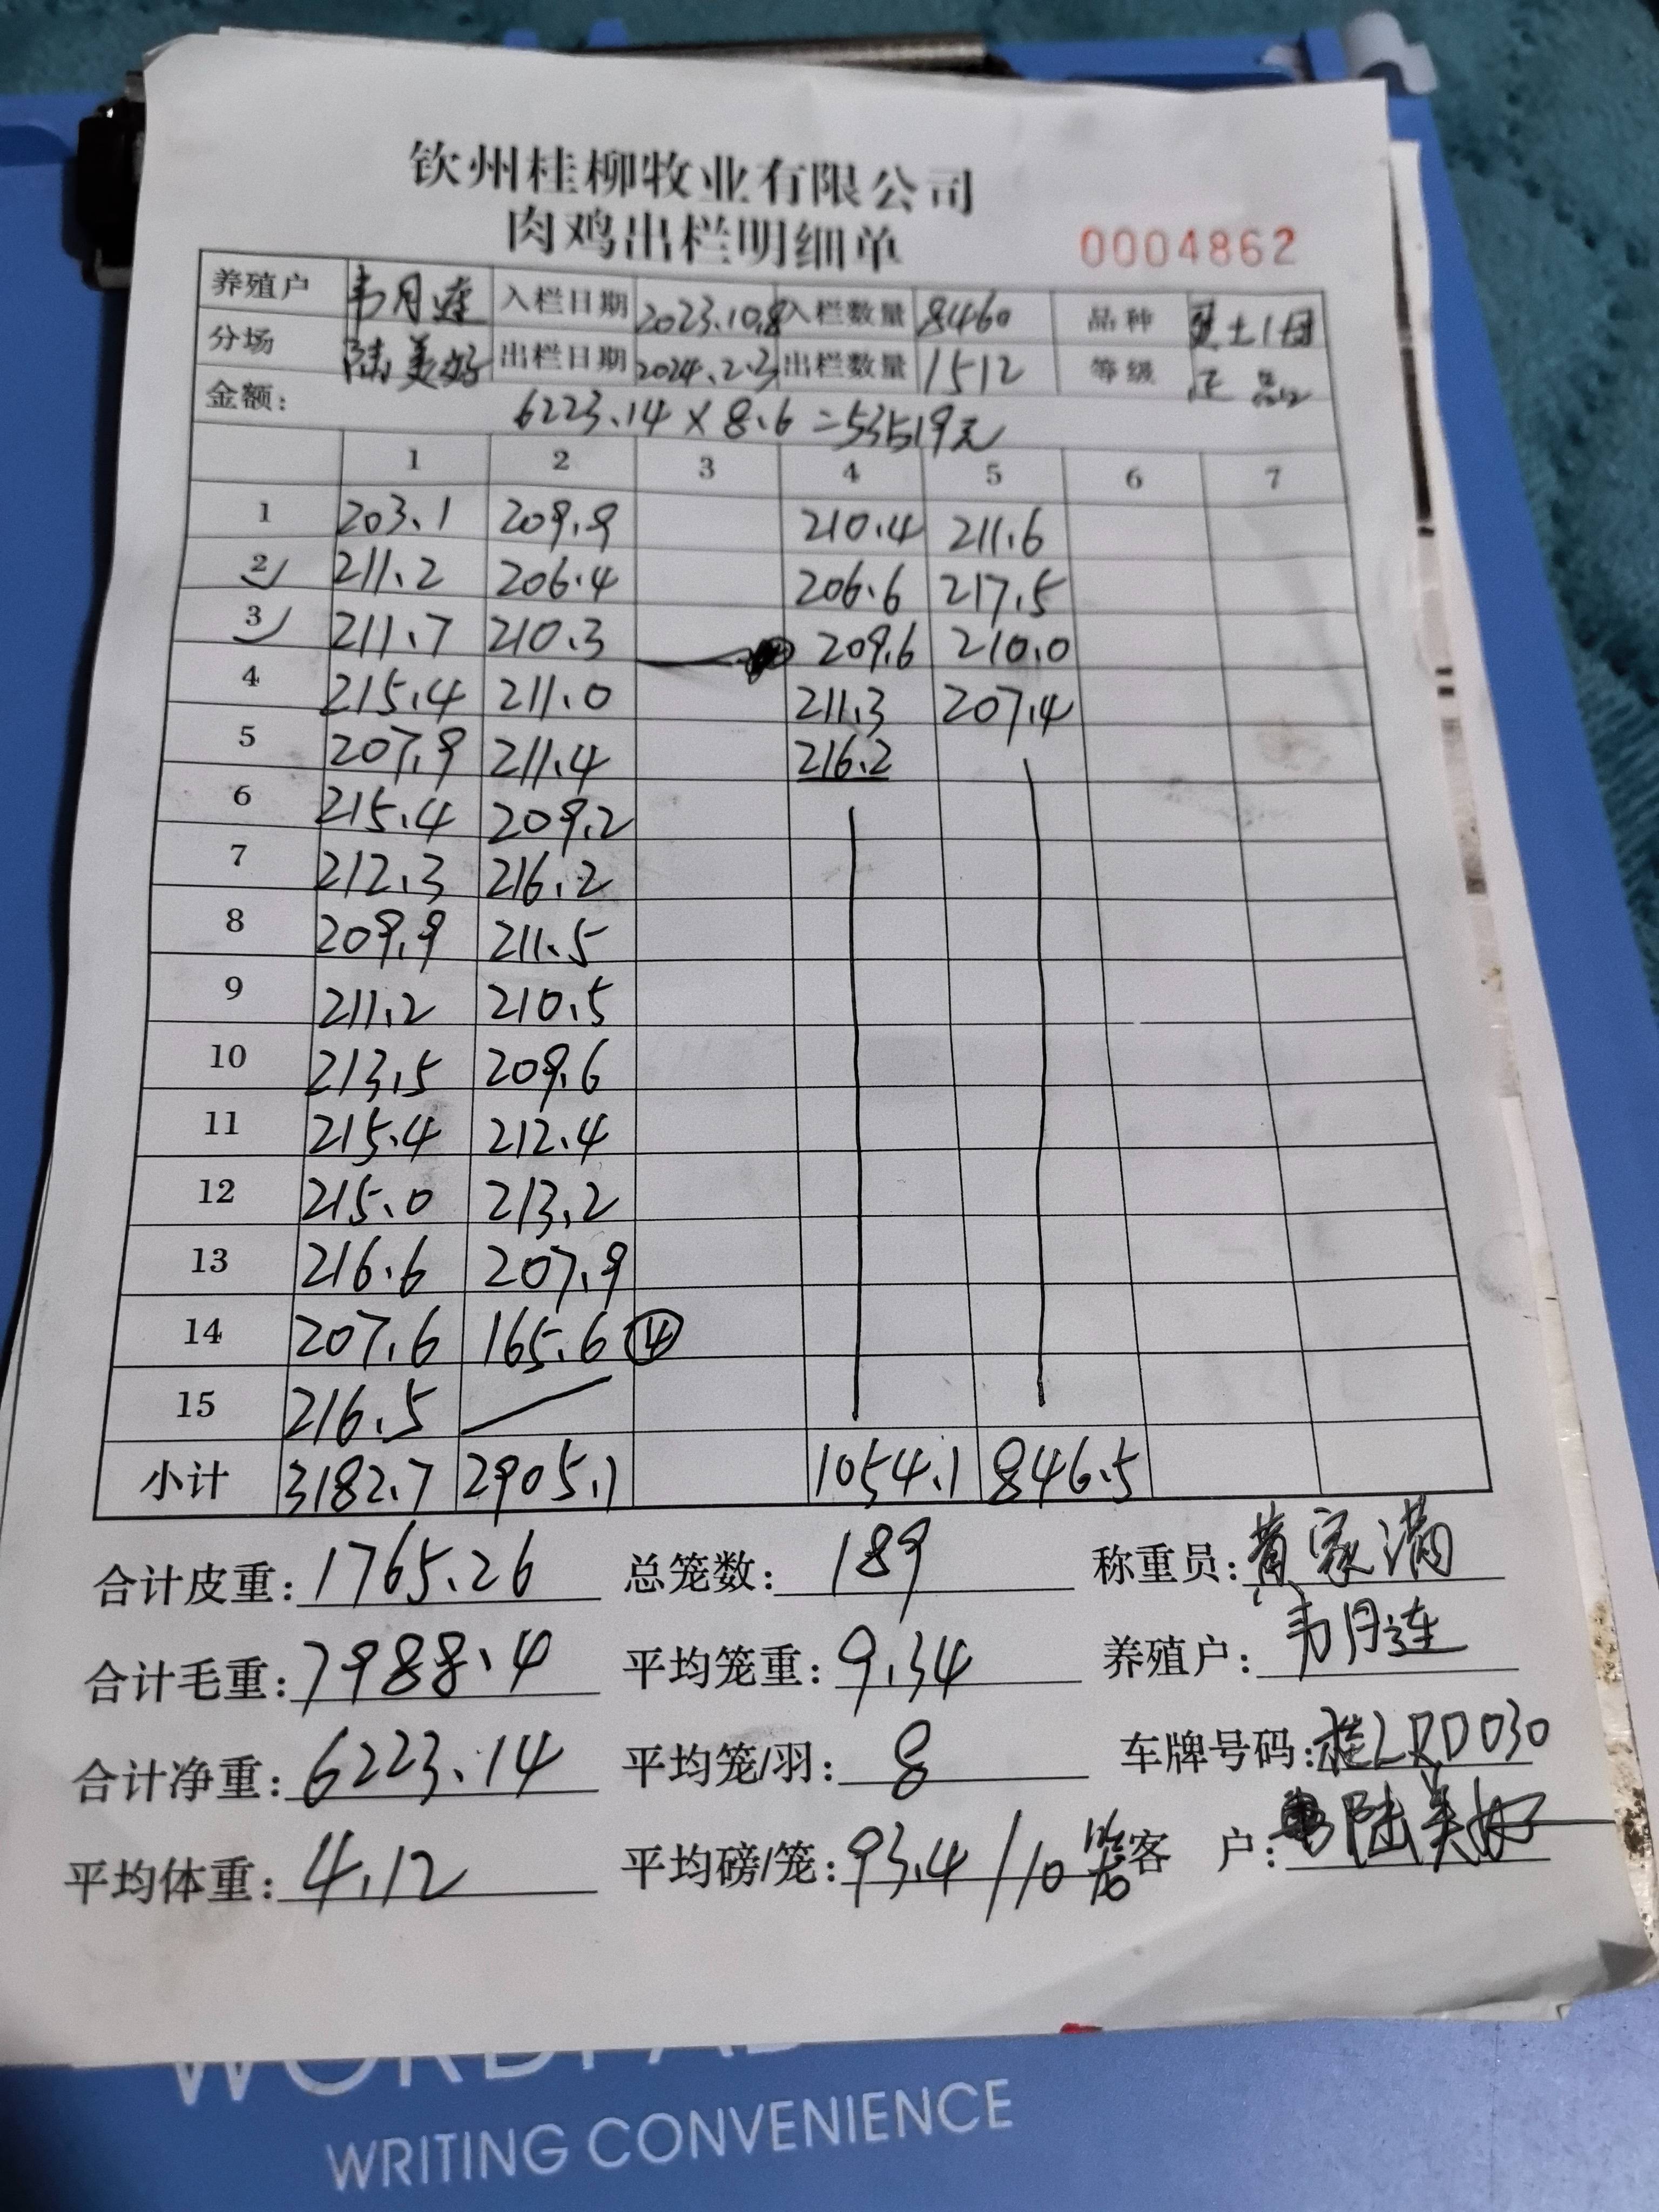 钦州桂柳牧业有限公司
肉鸡出栏明细单
0004862
养殖户 韦月连 入栏日期 2023.10.8 入栏数量 8460 品种 土1母
分场 陆美好 出栏日期 2024.2.3 出栏数量 1512 等级 正品
金额: 6223.14×8.6=53519元
1 2 3 4 5 6 7
1 203.1 209.9 210.4 211.6
2 211.2 206.4 206.6 217.5
3 211.7 210.3 209.6 210.0
4 215.4 211.0 211.3 207.4
5 207.9 211.4 216.2
6 215.4 209.2
7 212.3 216.2
8 209.9 211.5
9 211.2 210.5
10 213.5 209.6
11 215.4 212.4
12 215.0 213.2
13 216.6 207.9
14 207.6 165.6 ④
15 216.5
小计 3182.7 2905.1 1054.1 846.5
合计皮重: 1765.26 总笼数: 189 称重员: 黄家满
合计毛重: 7988.4 平均笼重: 9.34 养殖户: 韦月连
合计净重: 6223.14 平均笼/羽: 8 车牌号码: 桂LRD030
平均体重: 4.12 平均磅/笼: 93.4/10 客户: 陆美好
WORDPAD
WRITING CONVENIENCE